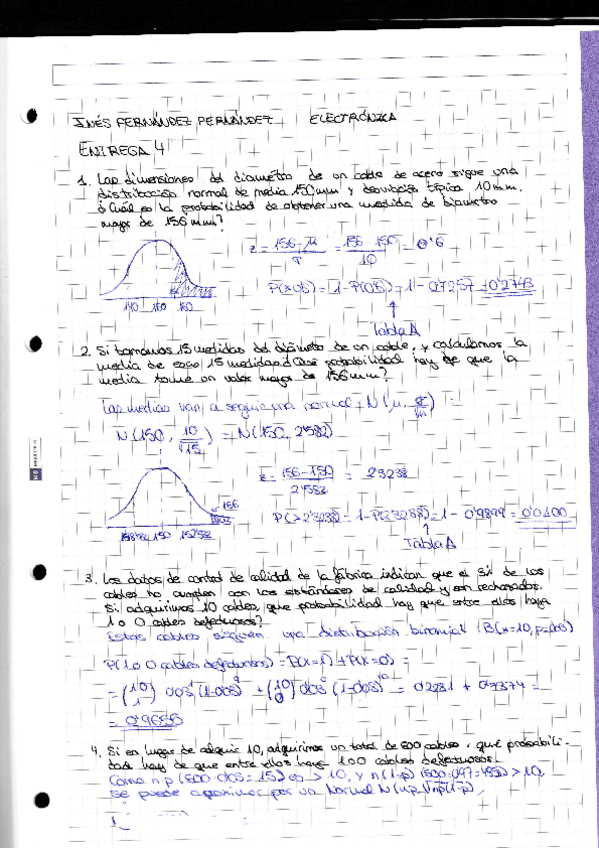 INÉS FERNÁNDEZ FERNÁNDEZ ELECTRÓNICA
ENTREGA 4
1. Las dimensiones del diametro de un cable de acero sigue una
distribución normal de media 150mm y desviación típica 10mm.
¿Cuál es la probabilidad de obtener una medida de diametro
mayor de 156mm?
z = 156-μ/σ = 156-150/10 = 0'6
P(>0'6) = 1-P(0'6) = 1-0'7257 = 0'2743
140 150 160
Tabla A
2. Si tomamos 15 medidas del diámetro de un cable, y calculamos la
media de esas 15 medidas ¿Qué probabilidad hay de que la
media tome un valor mayor de 156mm?
Las medias van a seguir una normal N(μ, σ/√n):
N(150, 10/√15) = N(150, 2'582)
z = 156-150/2'582 = 2'3238
156
P(>2'3238) = 1-P(2'3238) = 1-0'9899 = 0'0100
150 152'582
Tabla A
3. Los datos de control de calidad de la fábrica indican que el de los
cables no cumplen con los estándares de calidad y son rechazados.
Si adquirimos 10 cables, que probabilidad hay que entre ellos haya
1 o 0 cables defectuosos?
Estos cables siguen una distribución binomial (B(n=10, p=0'03)
P(1 o 0 cables defectuosos) = P(X=1) + P(X=0) =
= (10/1) 0'03 (1-0'03) + (10/0) 0'03 (1-0'03) = 0'2281 + 0'7374 =
= 0'9655
4. Si en lugar de adquirir 10, adquirimos un total de 500 cables, qué probabili-
dad hay de que entre ellos haya 100 cables defectuosos?
Como n·p (500·0'03=15) es > 10, y n(1-p) (500·0'97=485) > 10
se puede aproximar por una Normal N(n·p, √np(1-p))